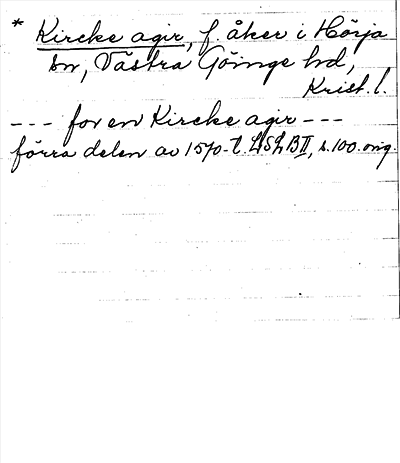 * Kircke agir, f. åker i Hörja
sn, Västra Göinge hd,
Krist. l.
--- for en Kircke agir ---
förra delen av 1570-t. LSLB II, s. 100. orig.